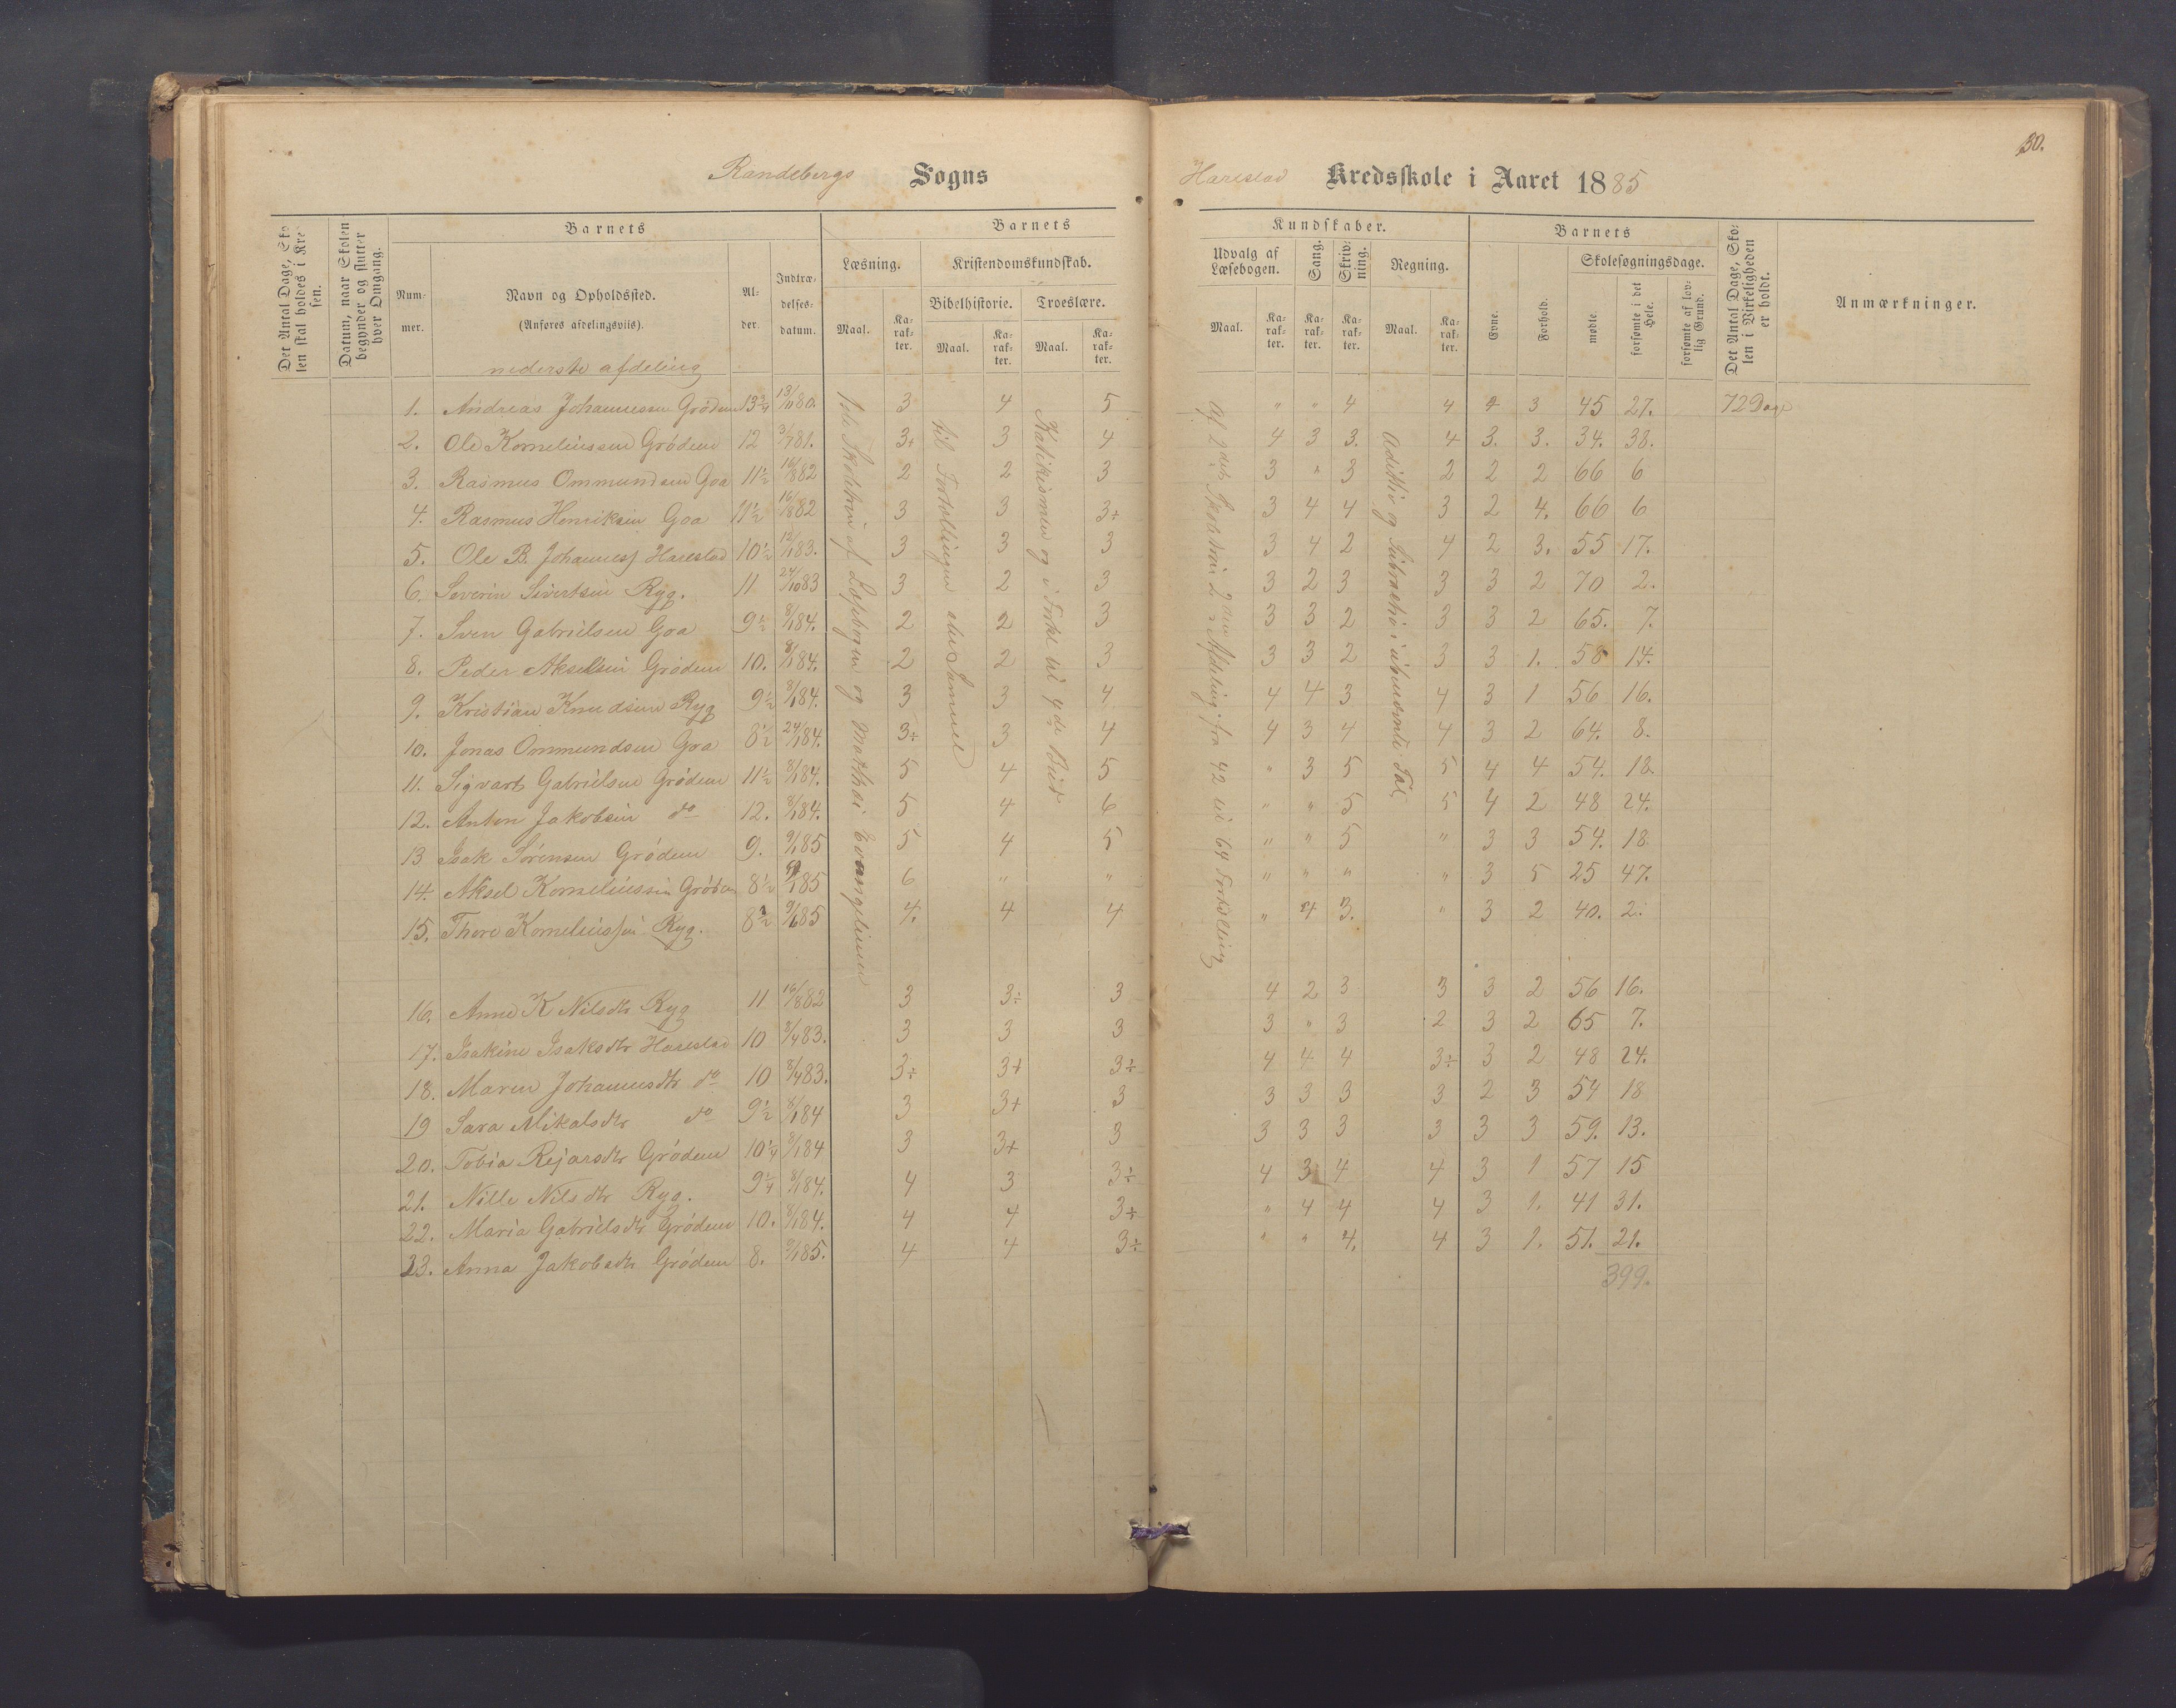 50.
Randebergs Sogns
Harestad Kredsskole i Aaret 1885
Det Antal Dage, Skolen skal holdes i Kredsen.
Datum, naar Skolen begynder og slutter hver Omgang.
Barnets
Nummer.
Navn og Opholdssted.
(Anføres afdelingsviis).
Alder.
Indtrædelsesdatum.
Barnets
Læsning.
Maal.
Karakter.
Kristendomskundskab.
Bibelhistorie.
Maal.
Karakter.
Troeslære.
Maal.
Karakter.
Kundskaber.
Udvalg af Læsebogen.
Maal.
Karakter.
Sang.
Karakter.
Skrivning.
Karakter.
Regning.
Maal.
Karakter.
Barnets
Evne.
Forhold.
Skolesøgningsdage.
mødte.
forsømte i det Hele.
forsømte af lovlig Grund.
Det Antal Dage, Skolen i Virkeligheden er holdt.
Anmærkninger.
nederste afdeling
1. Andreas Johannessen Grødem 13 3/4 13/11 80. 3 4 5 " " 4 4 4 3 45 27. 72 Dage
2. Ole Korneliussen Grødem 12 3/7 81. 3+ 3 4 4 3 3. 4 3. 3. 34. 38.
3. Rasmus Ommundsen Goa 11 1/2 16/8 82 2 2 3 3 " 3 2 2 2 66 6
4. Rasmus Henriksen Goa 11 1/2 16/8 82 3 3 3÷ 3 4 4 3 2 4. 66 6
5. Ole B. Johanness Harestad 10 1/2 12/1 83. 3 3 3 3 4 2 4 2 3. 55 17.
6. Severin Sivertsen Ryg. 11 24/10 83 3 2 3 3 2 3 3 3 2 70 2.
7. Sven Gabrielsen Goa 9 1/2 8/1 84. 2 2 3 3 3 2 3 3 2 65. 7.
8. Peder Akselsen Grødem 10. 8/1 84. 2 2 3 3 3 2 3 3 1. 58 14.
9. Kristian Knudsen Ryg 9 1/2 8/1 84. 3 3 4 4 4 3 4 3 1 56 16.
10. Jonas Ommundsen Goa 8 1/2 24/1 84. 3÷ 3 4 4 3 4 4 3 2 64. 8.
11. Sigvart Gabrielsen Grødem 11 1/2 8/1 84. 5 4 5 " 3 5 5 4 4 54. 18.
12. Anton Jakobsen do 12. 8/1 84. 5 4 6 " " 5 5 4 2 48 24.
13 Isak Sørensen Grødem 9. 9/1 85 5 4 5 " " 5 " 3 3 54. 18
14. Aksel Korneliussen Grødem 8 1/2 9/1 85 6 " " " " " " 3 5 25 47.
15. Thore Korneliussen Ryg. 8 1/2 9/6 85 4. 4 4 " 4 3. " 3 2 40. 2.
16. Anne K Nilsdtr Ryg 11 16/8 82 3 3÷ 3 4 2 3 3 3 2 56 16.
17. Isakine Isaksdtr Harestad 10 8/4 83. 3 3 3 3 " 3 2 3 2 65 7.
18. Maren Johannesdtr do 10 8/4 83. 3÷ 3+ 3÷ 4 4 4 3÷ 3 2 48 24.
19 Sara Mikalsdtr do 9 1/2 8/1 84 3 3+ 3 3 3 3 3 2 3 54 18
20. Tobia Rejarsdtr Grødem 10 1/4 8/1 84 3 3+ 3 3 3 3 3 3 3 59. 13.
21. Nille Nilsdtr Ryg. 9 1/4 8/1 84. 4 3 3÷ 4 3 4 4 3 1 57 15
22. Maria Gabrielsdtr Grødem 10. 8/1 84. 4 4 3÷ " 4 4 4 3 1. 41 31.
23. Anna Jakobsdtr Grødem 8. 9/1 85. 4 4 3÷ " " 4. 4 3 1. 51. 21.
399.
af Læsebogen og Mathæi Evangelium
til Fortællingen om Samuel
Katikismen og i Forkl til 4de Bud
Af 2det Skoletrin 2den Afdeling. fra 42 til 64 Fortælling
Adition og Subraction i ubenævnte Tal